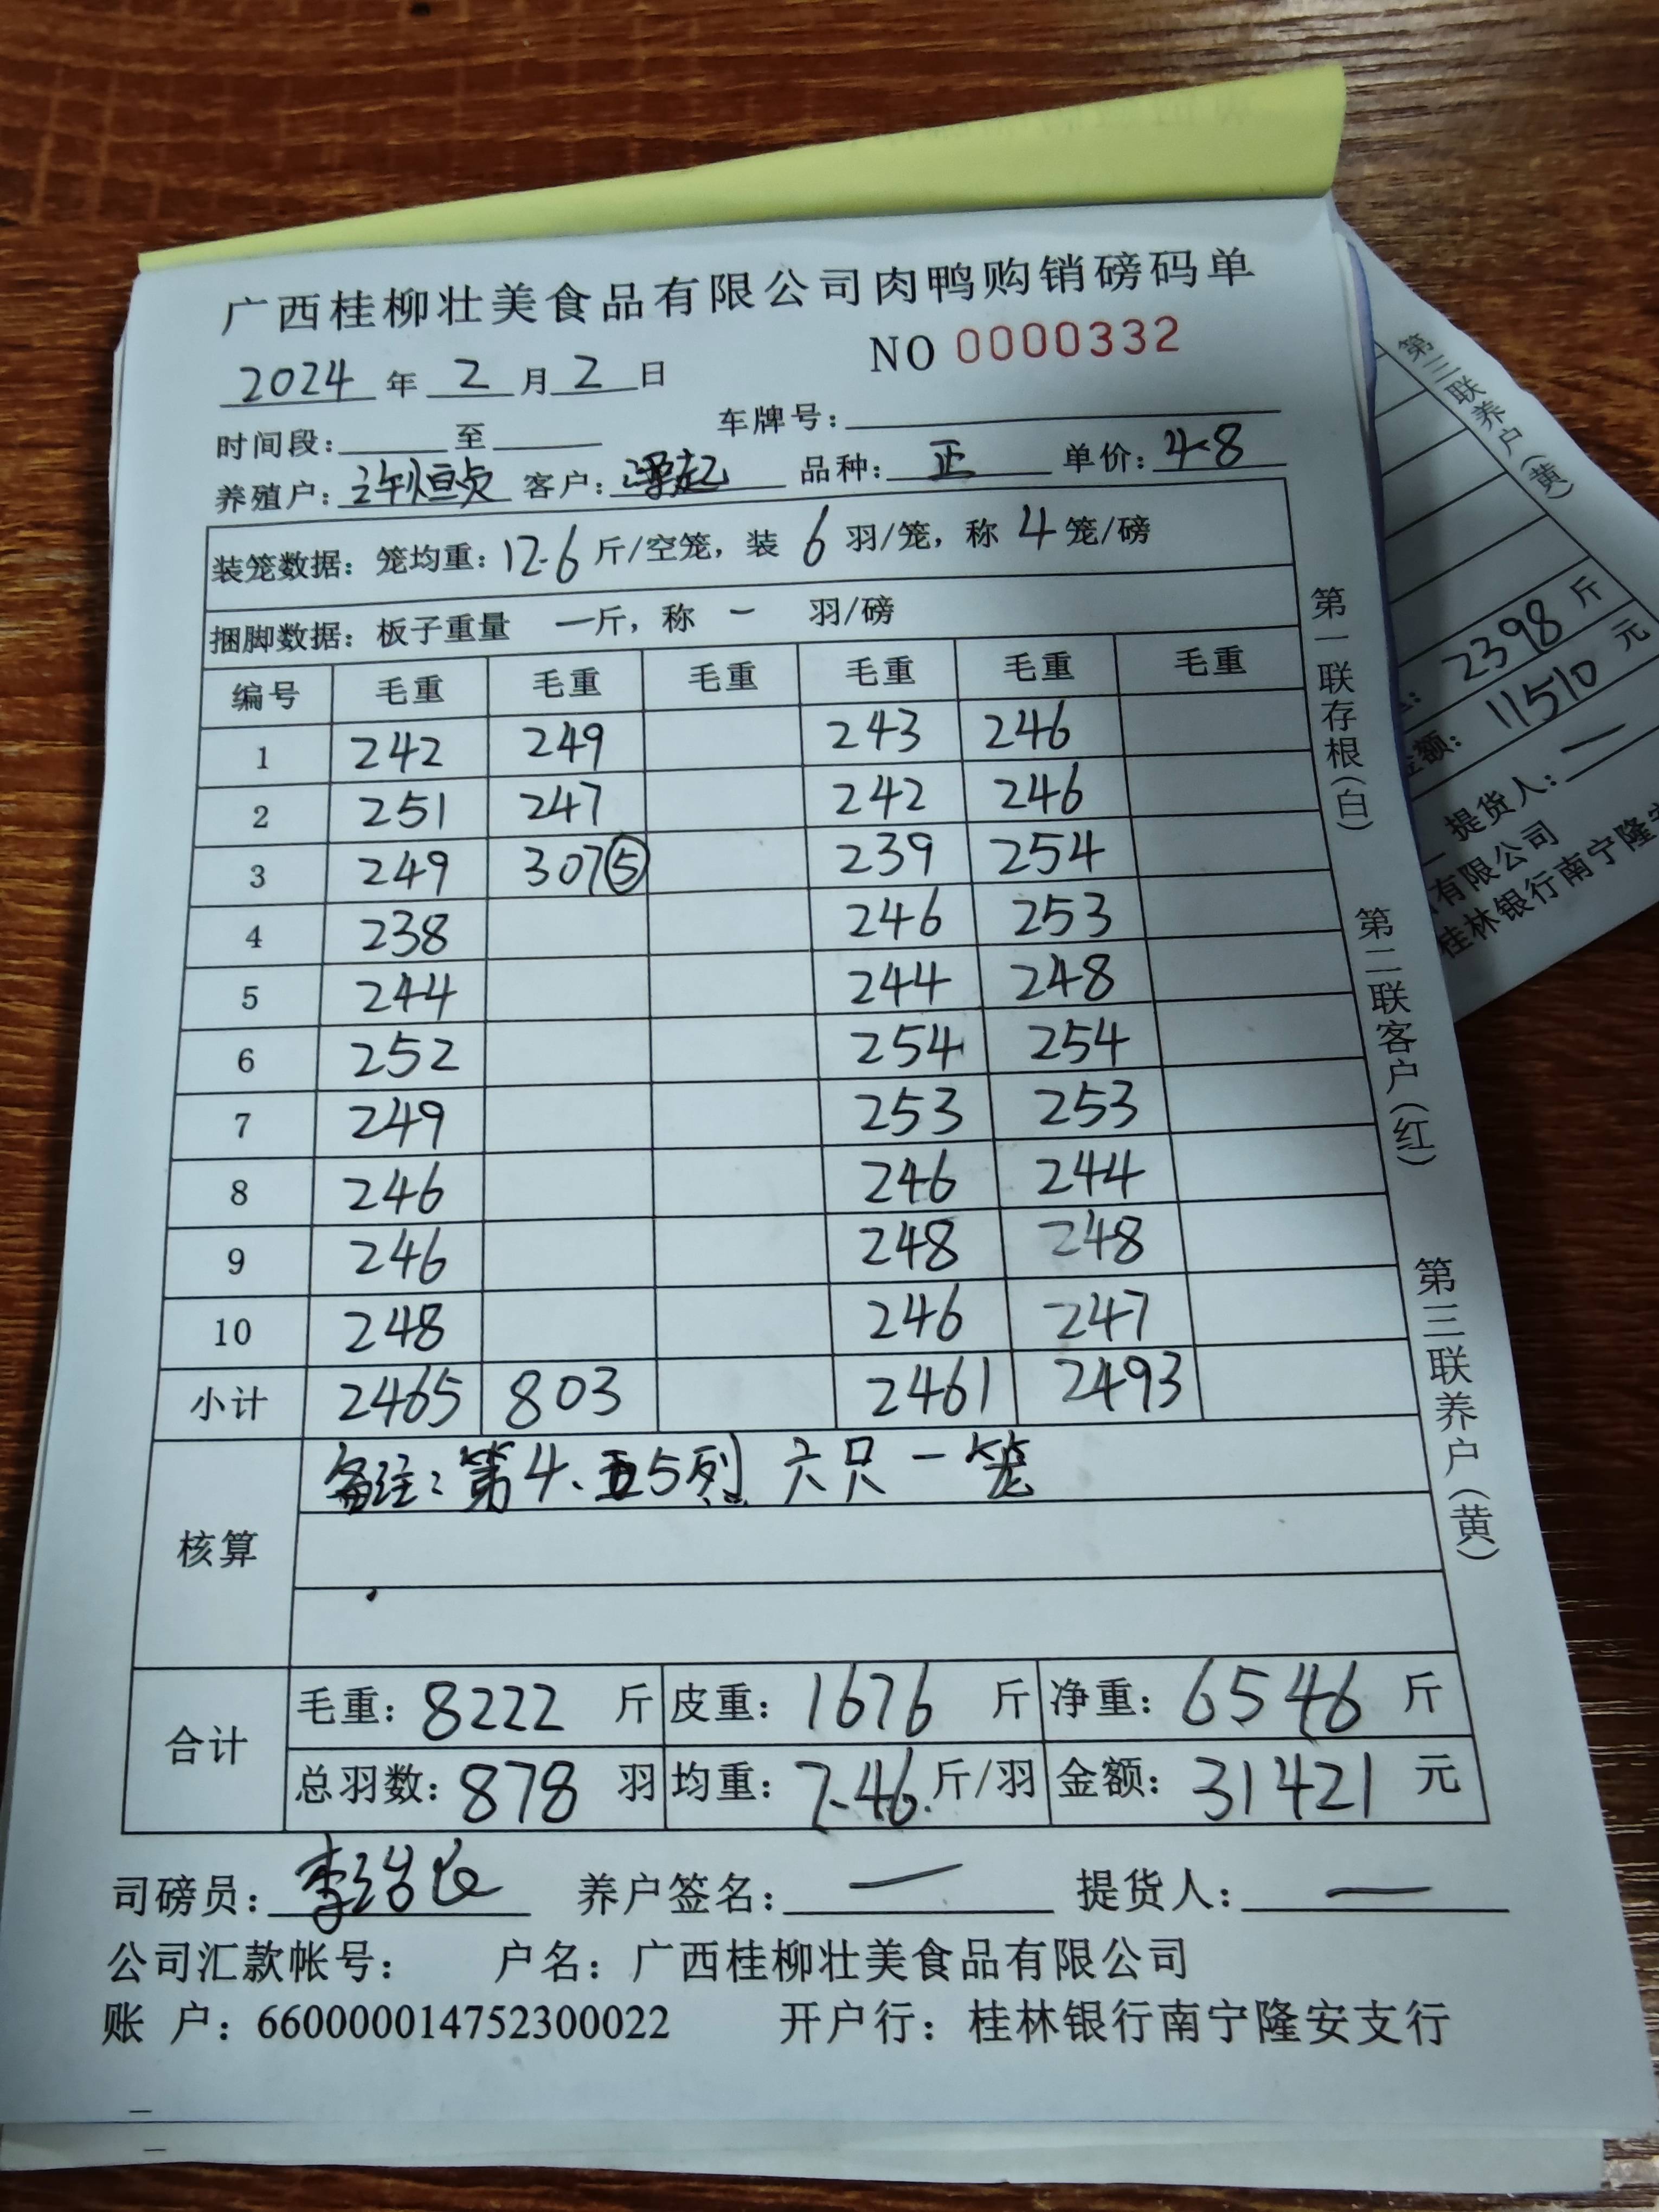 广西桂柳壮美食品有限公司肉鸭购销磅码单
2024 年 2 月 2 日 NO 0000332
时间段: 至 车牌号:
养殖户: 许恒贞 客户: 品种: 正 单价: 4.8
装笼数据: 笼均重: 12.6 斤/空笼, 装 6 羽/笼, 称 4 笼/磅
捆脚数据: 板子重量 一斤, 称 一 羽/磅
编号 毛重 毛重 毛重 毛重 毛重 毛重
1 242 249 243 246
2 251 247 242 246
3 249 307⑤ 239 254
4 238 246 253
5 244 244 248
6 252 254 254
7 249 253 253
8 246 246 244
9 246 248 248
10 248 246 247
小计 2465 803 2461 2493
核算 备注: 第4、5列 六只一笼
合计 毛重: 8222 斤 皮重: 1676 斤 净重: 6546 斤
总羽数: 878 羽 均重: 7.46 斤/羽 金额: 31421 元
司磅员: 养户签名: 一 提货人: 一
公司汇款帐号: 户名: 广西桂柳壮美食品有限公司
账 户: 660000014752300022 开户行: 桂林银行南宁隆安支行
第一联存根(白) 第二联客户(红) 第三联养户(黄)
第三联养户(黄)
2398 斤
额: 11510 元
提货人: 一
有限公司
桂林银行南宁隆安